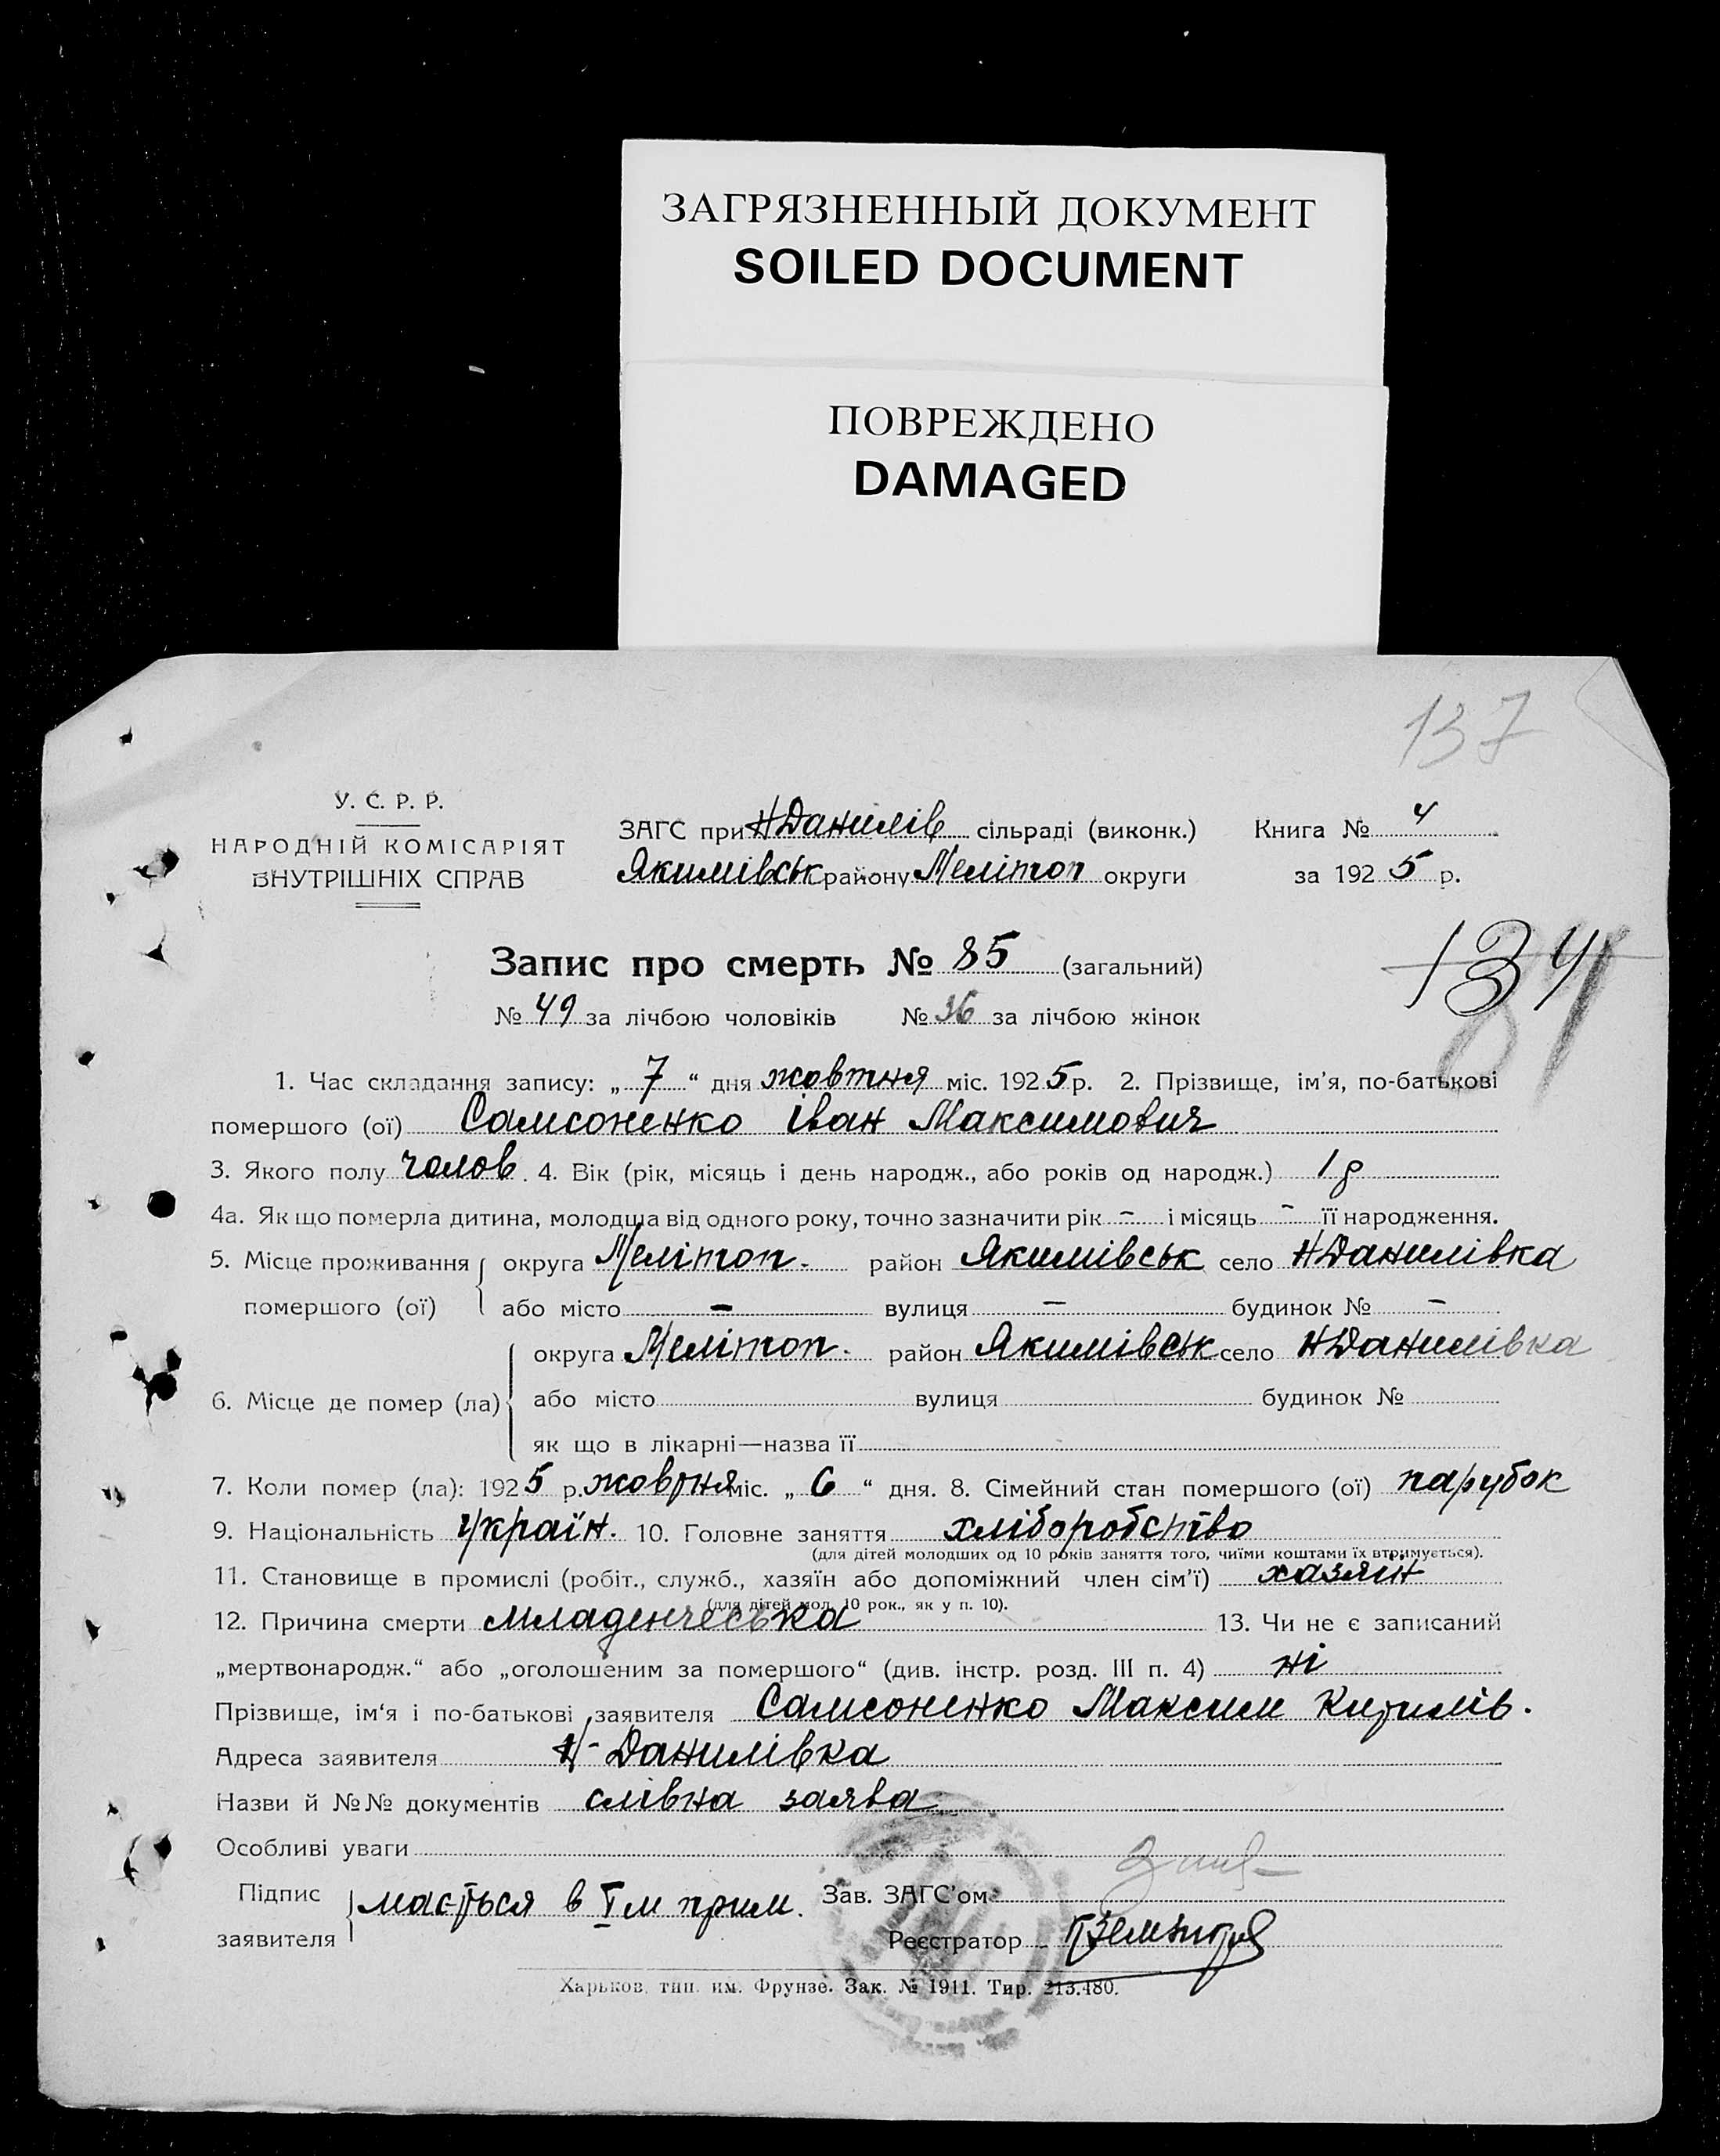 ЗАГРЯЗНЕННЫЙ ДОКУМЕНТ
SOILED DOCUMENT
ПОВРЕЖДЕНО
DAMAGED
137
У. С. Р. Р.
НАРОДНІЙ КОМІСАРІЯТ
ВНУТРІШНІХ СПРАВ
ЗАГС при НДанилів сільраді (виконк.) Книга № 4
Якимівськ району Мелітоп округи за 1925 р.
134
Запис про смерть № 85 (загальний)
№ 49 за лічбою чоловіків № 36 за лічбою жінок
1. Час складання запису: „7“ дня жовтня міс. 1925 р. 2. Прізвище, ім'я, по-батькові
помершого (ої) Самсоненко Іван Максимович
3. Якого полу чолов. 4. Вік (рік, місяць і день народж., або років од народж.) 1 р
4а. Як що померла дитина, молодша від одного року, точно зазначити рік - і місяць - її народження.
5. Місце проживання округа Мелітоп. район Якимівськ село НДанилівка
помершого (ої) або місто - вулиця - будинок № -
округа Мелітоп. район Якимівськ село НДанилівка
6. Місце де помер (ла) або місто вулиця будинок №
як що в лікарні—назва її
7. Коли помер (ла): 1925 р. жовтня міс. „6“ дня. 8. Сімейний стан помершого (ої) парубок
9. Національність Україн. 10. Головне заняття хліборобство
(для дітей молодших од 10 років заняття того, чиїми коштами їх втримується).
11. Становище в промислі (робіт., служб., хазяїн або допоміжний член сім'ї) хазяїн
(для дітей мол. 10 рок., як у п. 10).
12. Причина смерти младенческа 13. Чи не є записаний
„мертвонародж.“ або „оголошеним за помершого“ (див. інстр. розд. III п. 4) ні
Прізвище, ім'я і по-батькові заявителя Самсоненко Максим Кирилів.
Адреса заявителя Н-Данилівка
Назви й №№ документів слівна заява
Особливі уваги
Підпис заявителя мається в І м прим. Зав. ЗАГС'ом
Реєстратор
Харьков, тип. им. Фрунзе. Зак. № 1911. Тир. 213.480.